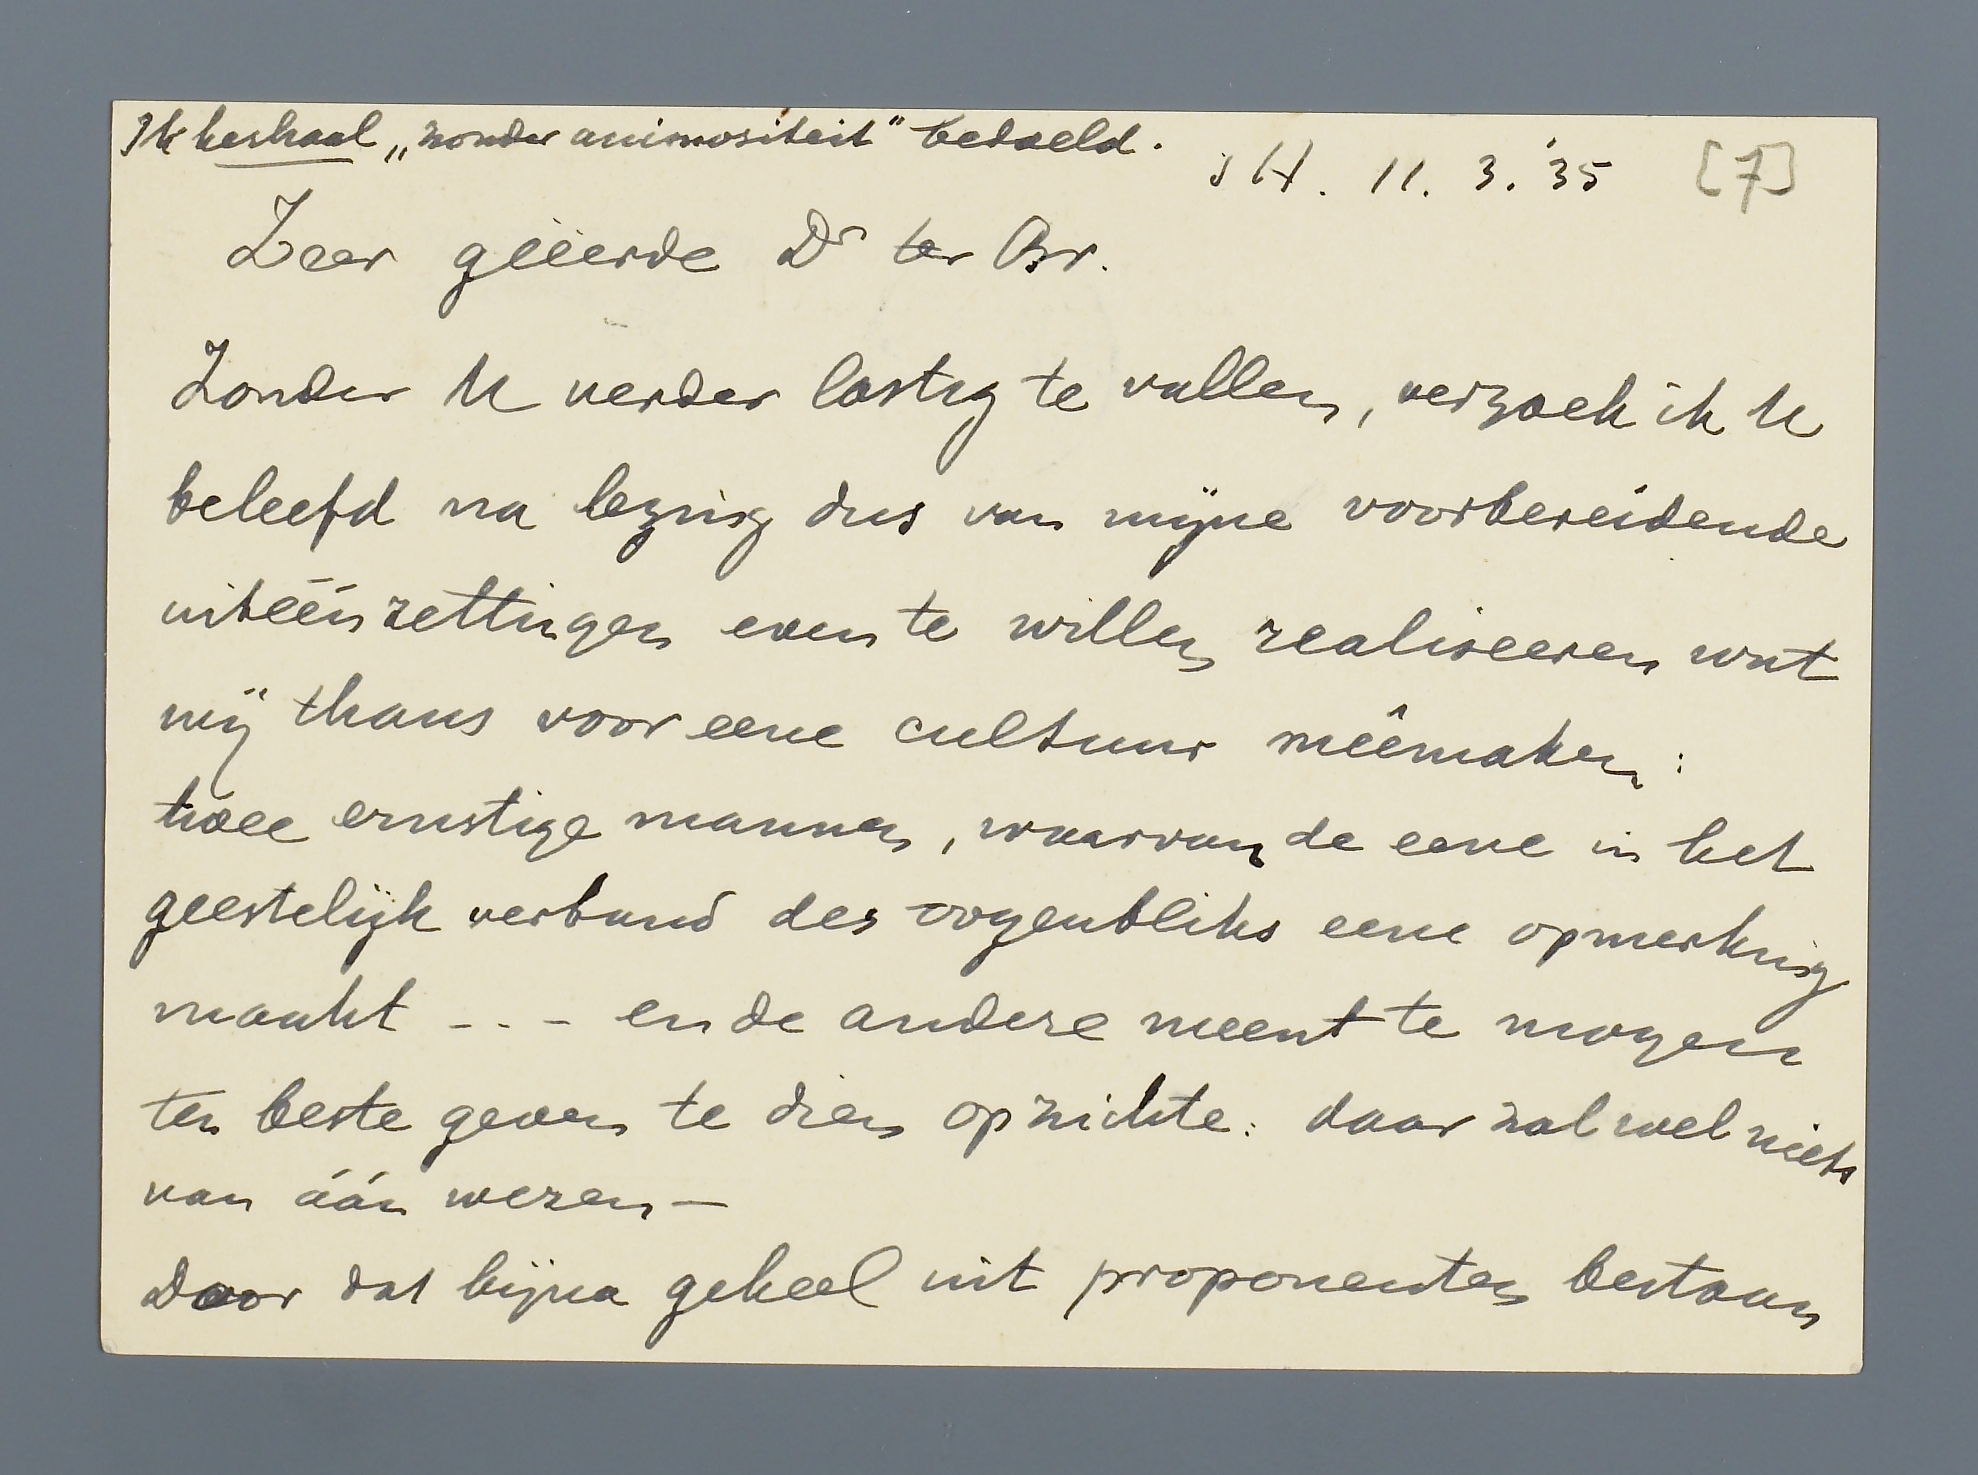 Ik herhaal „zonder animositeit" bedoeld.
's H. 11. 3. '35 [7]
Zeer geëerde Dr ter Br.
Zonder U verder lastig te vallen, verzoek ik U
beleefd na lezing dus van mijne voorbereidende
uitéénzettingen even te willen realiseeren wat
wij thans voor eene cultuur meêmaken:
twee ernstige mannen, waarvan de eene in het
geestelijk verband des oogenbliks eene opmerking
maakt --- en de andere meent te mogen
ten beste geven te dien opzichte: daar zal wel niets
van áán wezen —
Door dat bijna geheel uit proponenten bestaan